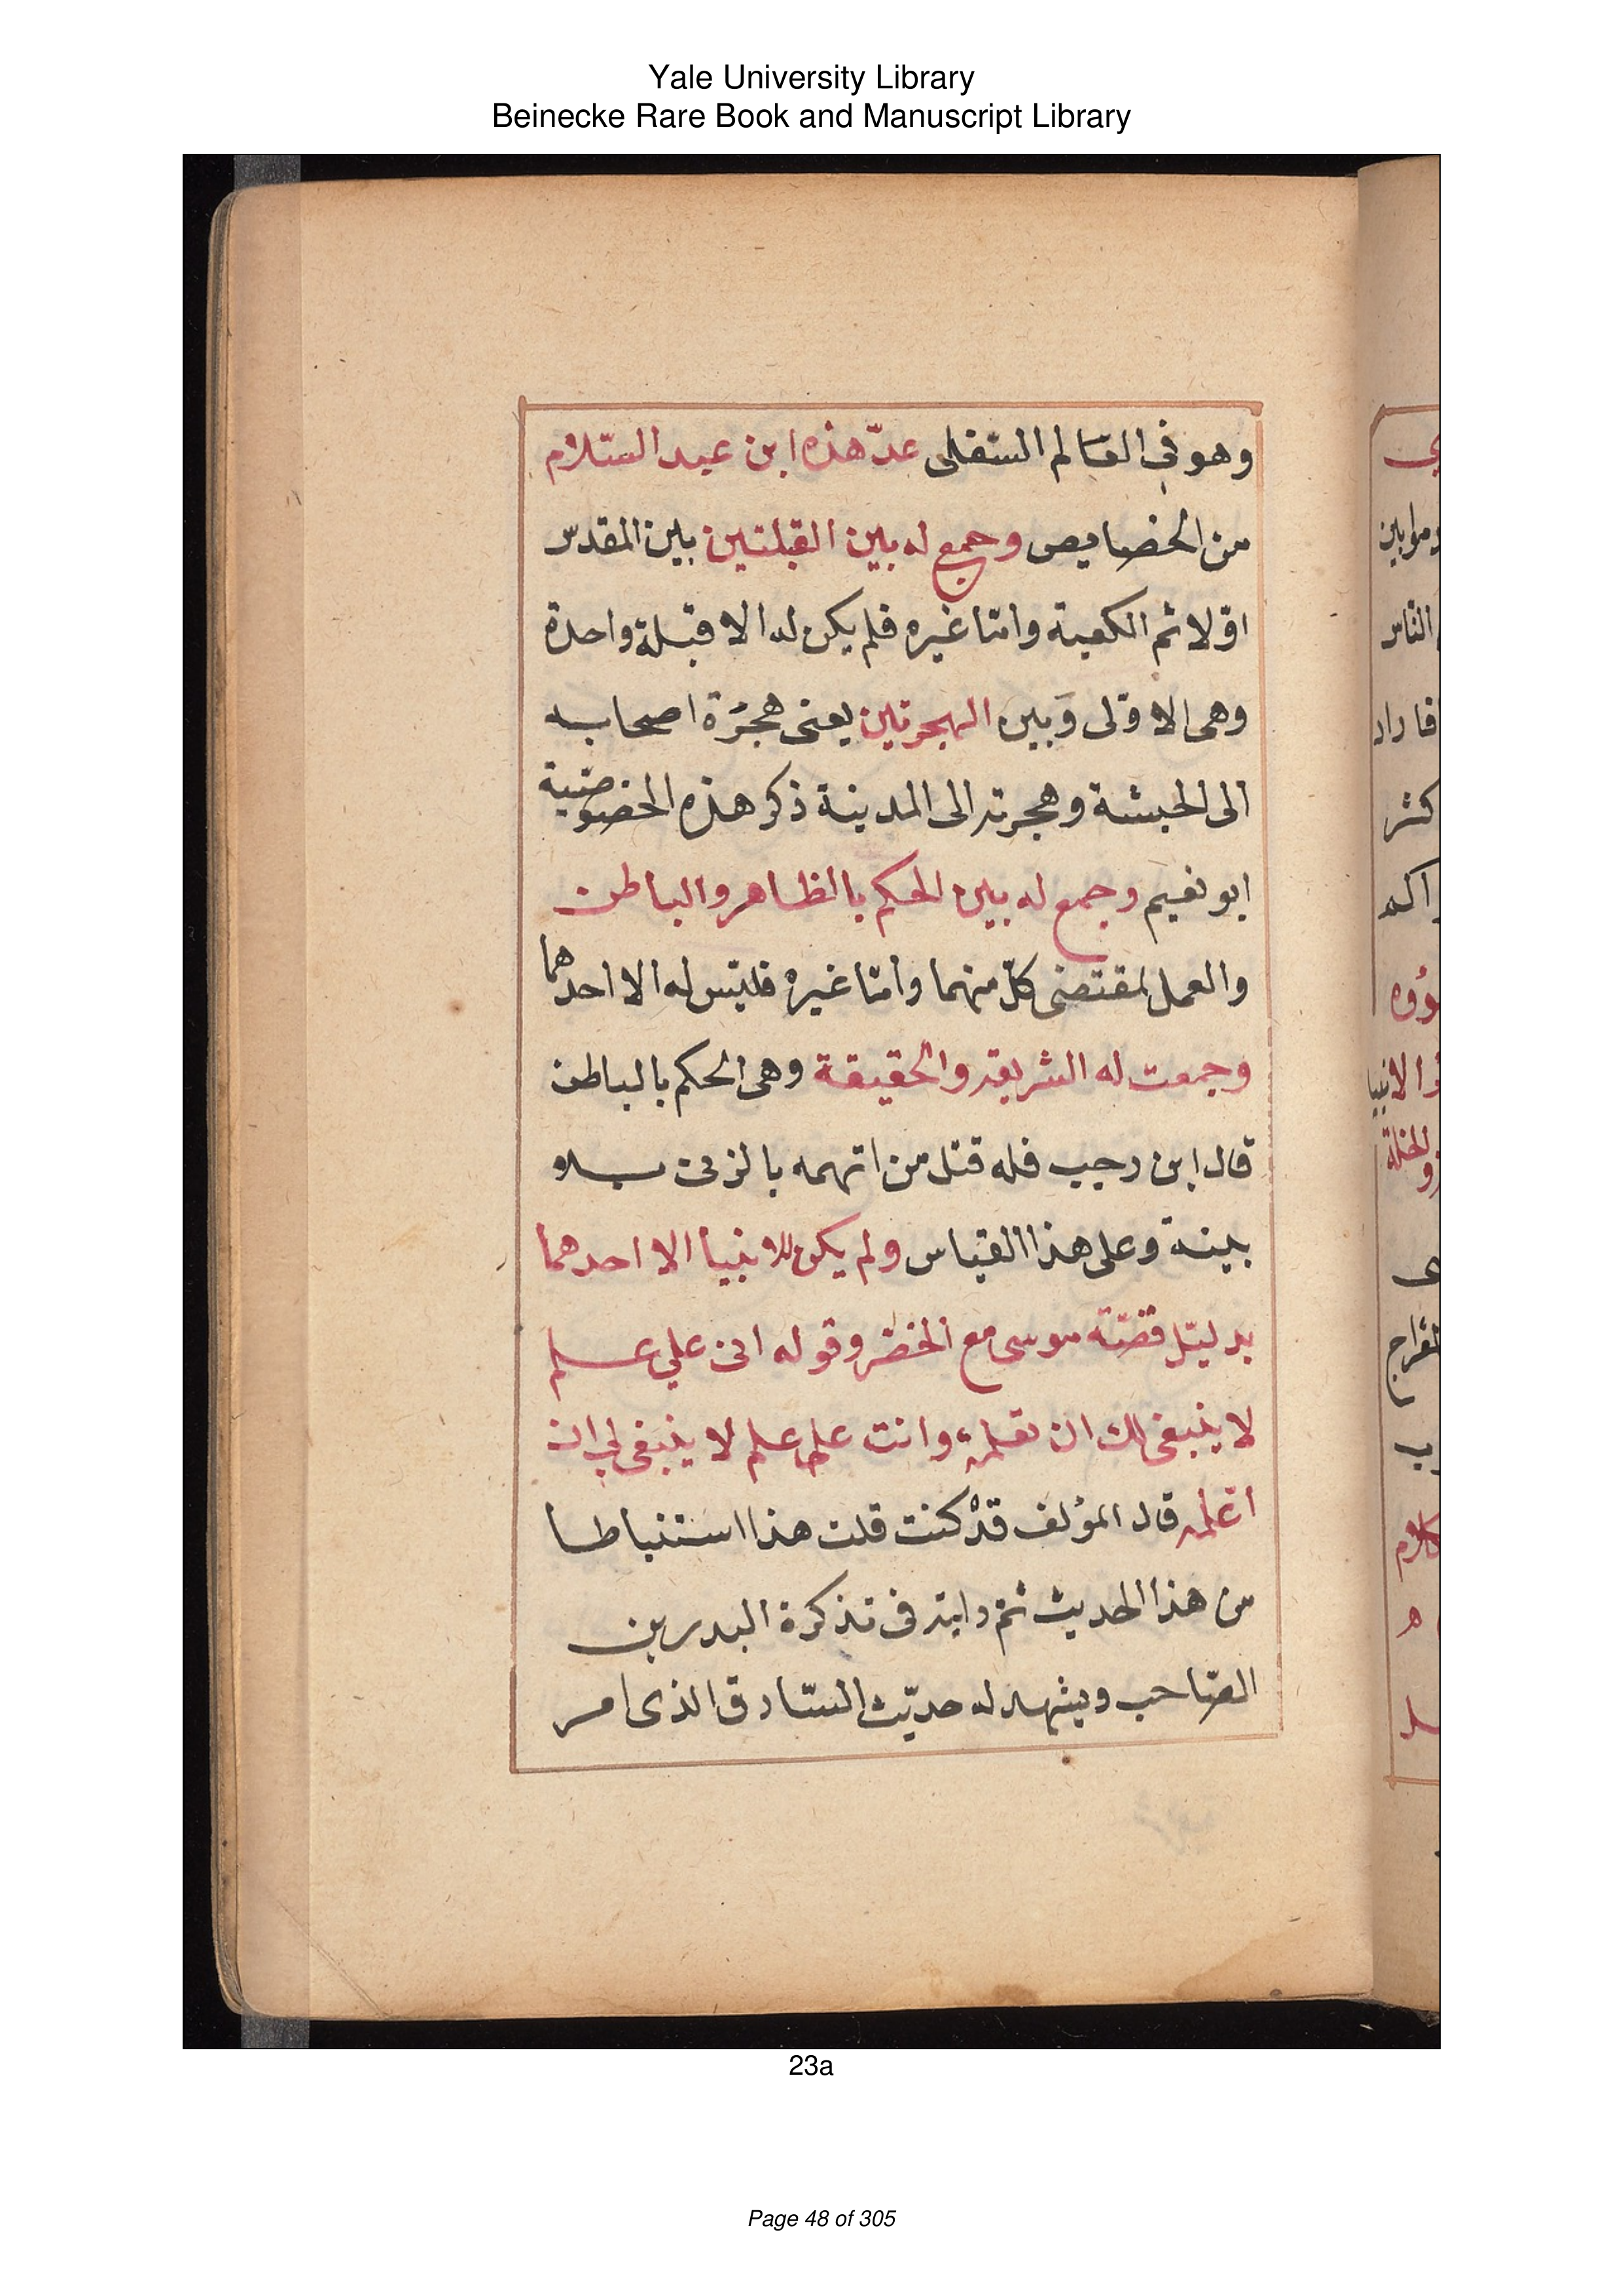 Yale University Library
Beinecke Rare Book and Manuscript Library
وهو في العالم السفلى عدّ هذه ابن عبد السّلام
من الخصايص وجمع له بين القبلتين بين المقدس
اوّلا ثم الكعبة وامّا غيره فلم يكن له الا قبلة واحدة
وهى الاولى وَبين الهجرتين يعنى هجرة اصحابه
الى الحبشة وهجرته الى المدينة ذكر هذه الخصوصيّة
ابو نعيم وجمع له بين الحكم بالظاهر والباطن
والعمل بمقتضى كلّ منهما وامّا غيره فليس له الا احدهما
وجمعت له الشريعة والحقيقة وهى الحكم بالباطن
قال ابن رجب فله قتل من اتهمه بالزنى بلا
بينة وعلى هذا القياس ولم يكن للانبيا الا احدهما
بدليل قصّة موسى مع الخضر وقوله انى علي علم
لا ينبغى لك ان تعلمه وانت على علم لا ينبغى لي ان
اعلمه قال المؤلف قدْ كنت قلت هذا استنباطا
من هذا الحديث ثم رايته فى تذكرة البدر بن
الصّاحب ويشهد له حديث السّارق الذى امر
23a
Page 48 of 305